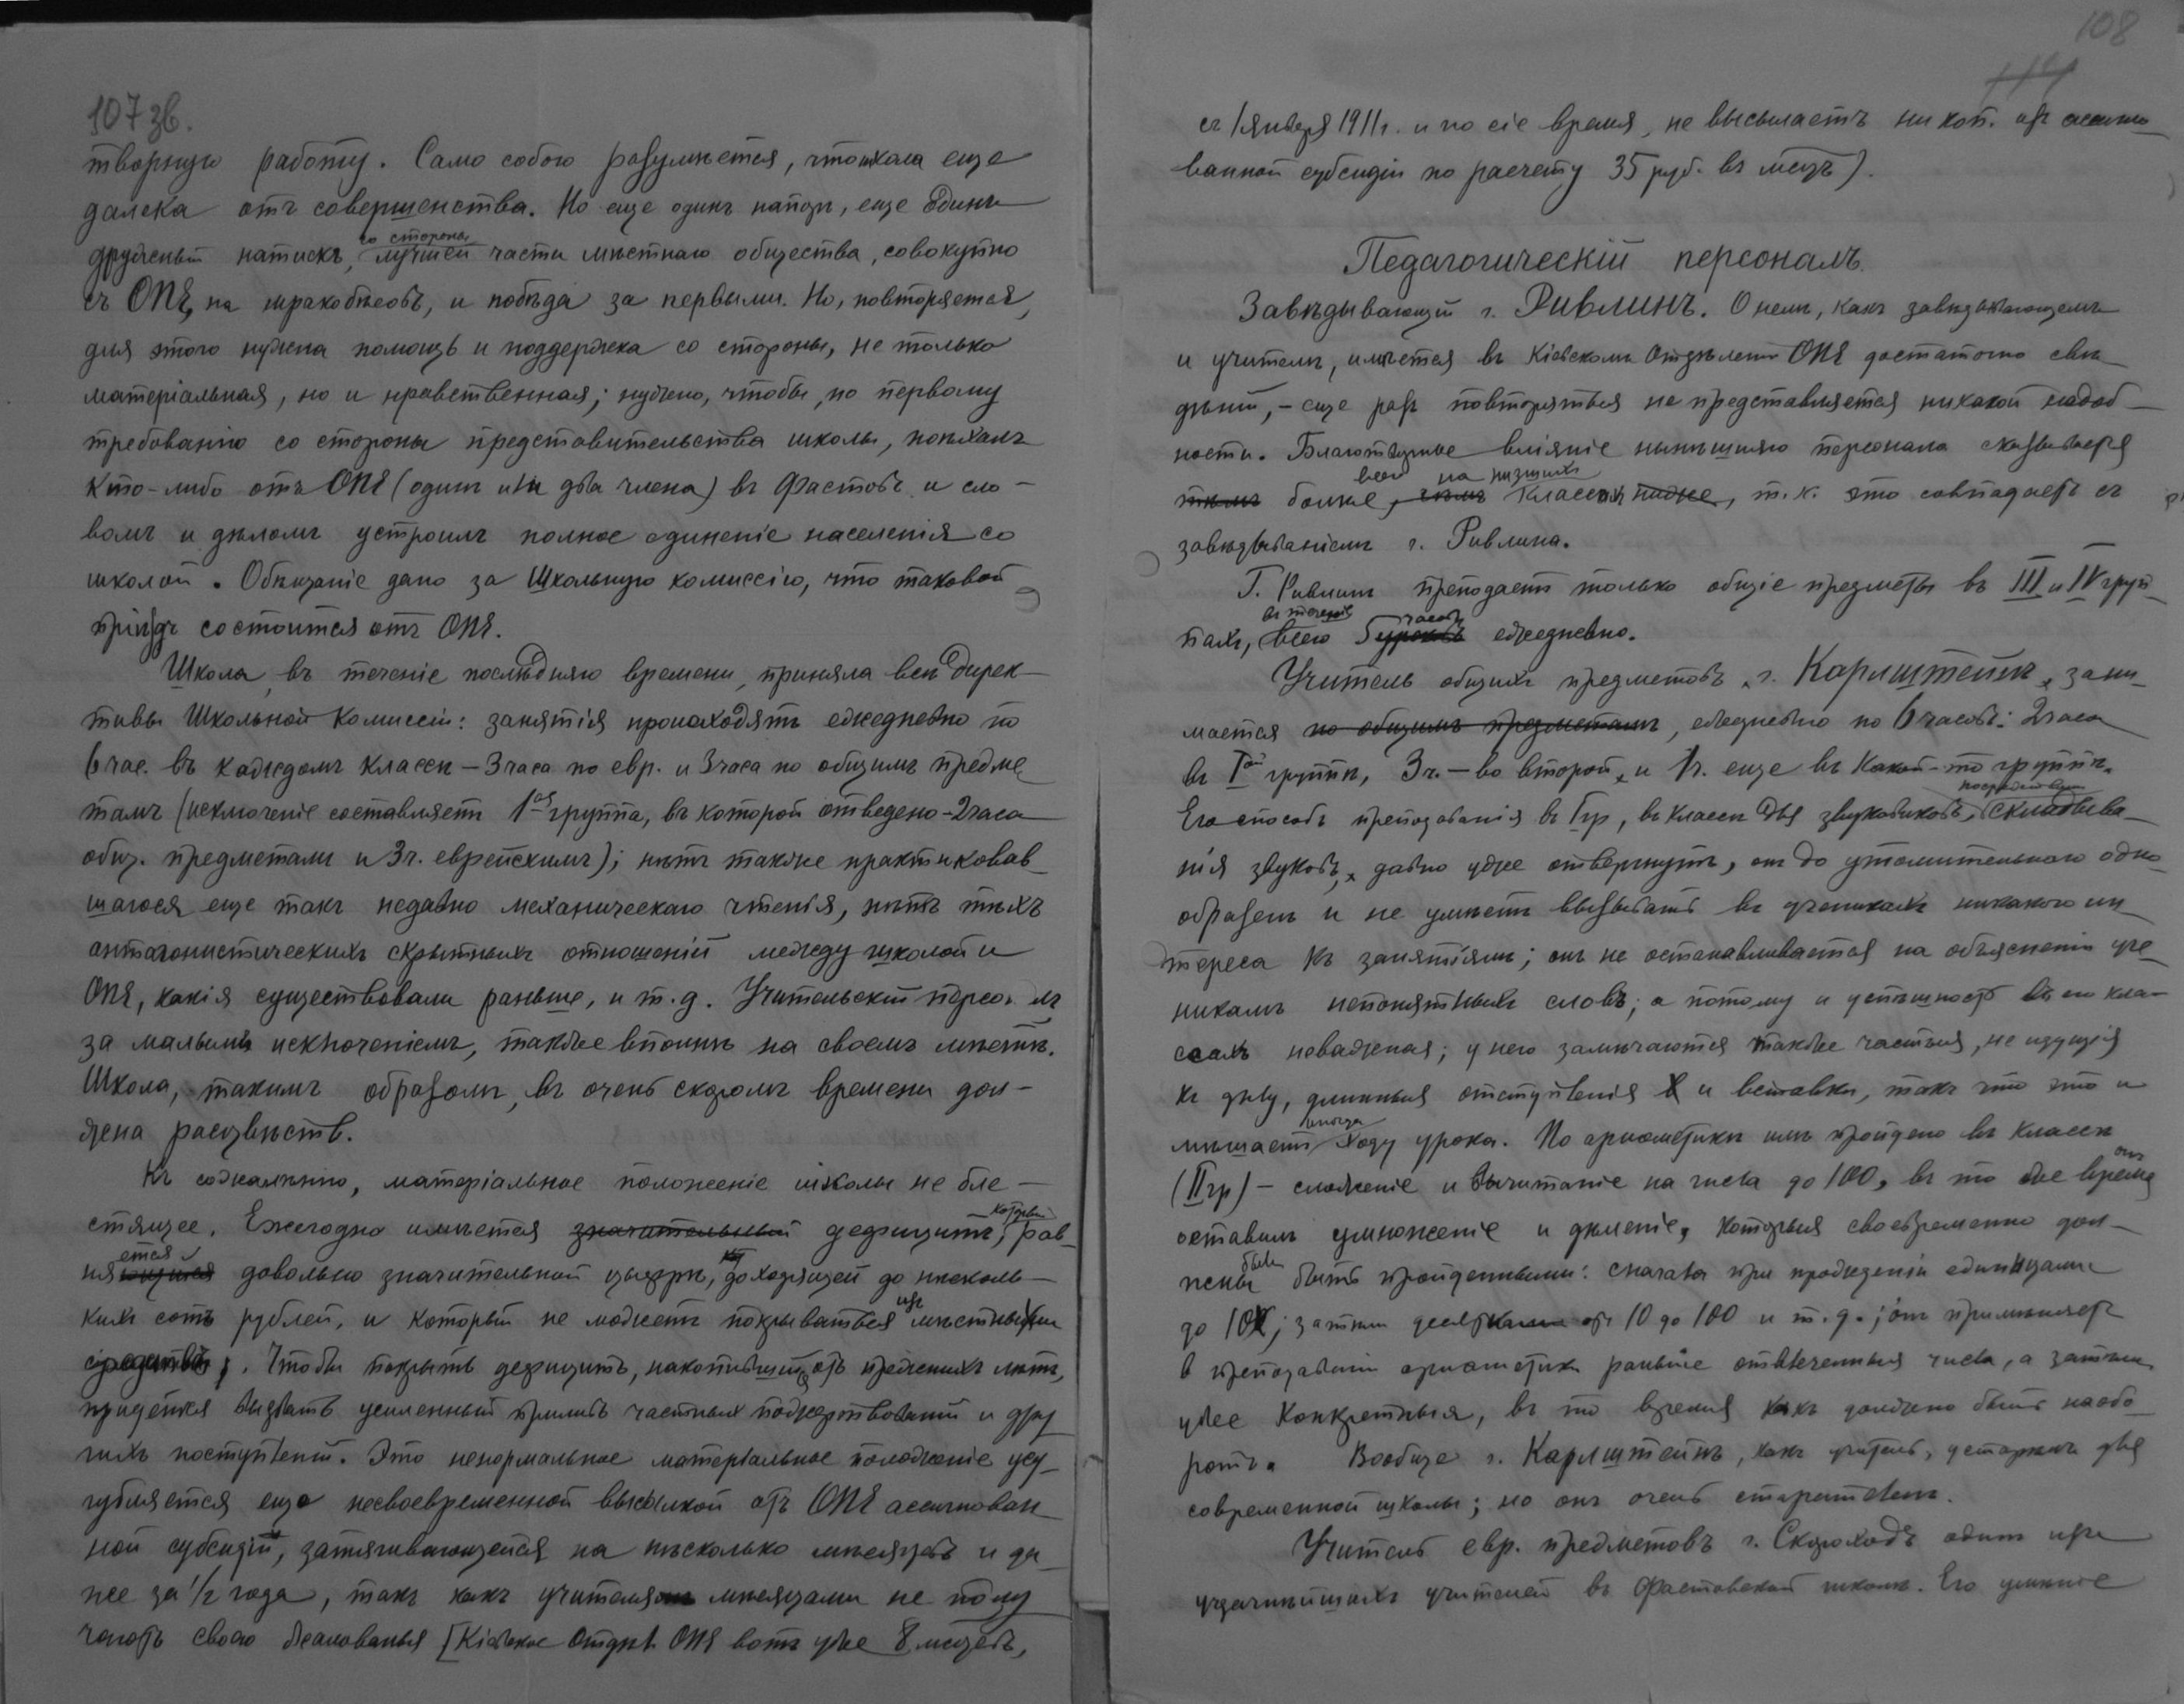 107 зв.
творную работу. Само собою разумѣется, что школа еще
далека отъ совершенства. Но еще одинъ напоръ, еще одинъ
дружный натискъ, со стороны лучшей части мѣстнаго общества, совокупно
съ ОПЕ, на мракобѣсовъ, и побѣда за первыми. Но, повторяется,
для этого нужна помощь и поддержка со стороны, не только
матеріальная, но и нравственная; нужно, чтобы, по первому
требованію со стороны представительства школы, поѣхалъ
кто-либо отъ ОПЕ (одинъ или два члена) въ Фастовъ и сло-
вомъ и дѣломъ устроилъ полное единеніе населенія со
школой. Обѣщаніе дано за Школьную комиссію, что таковой
пріѣздъ состоится отъ ОПЕ.
Школа, въ теченіе послѣдняго времени, приняла всѣ дирек-
тивы Школьной Комиссіи: занятія происходятъ ежедневно по
6 час. въ каждомъ классѣ – 3 часа по евр. и 3 часа по общимъ предме
тамъ (исключеніе составляетъ 1ая группа, въ которой отведено – 2 часа
общ. предметамъ и 3 ч. еврейскимъ); нѣтъ также практиковав-
шагося еще такъ недавно механическаго чтенія, нѣтъ тѣхъ
антагонистическихъ скрытныхъ отношеній между школой и
ОПЕ, какія существовали раньше, и т. д. Учительскій персоналъ,
за малымъ исключеніемъ, также вполнѣ на своемъ мѣстѣ.
Школа, такимъ образомъ, въ очень скоромъ времени дол-
жна расцвѣсть.
Къ сожалѣнію, матеріальное положеніе школы не бле-
стящее. Ежегодно имѣется значительный дефицитъ, который рав-
няется довольно значительной цыфрѣ, доходящей до нѣсколь-
кихъ сотъ рублей, и который не можетъ покрываться изъ мѣстныхъ
средствъ. Чтобы покрыть дефицитъ, накопившійся отъ прежнихъ лѣтъ,
придется вызвать усиленный приливъ частныхъ пожертвованій и дру
гихъ поступленій. Это ненормальное матеріальное положеніе усу-
губляется еще несвоевременной высылкой отъ ОПЕ ассигнован-
ной субсидіи, затягивающейся на нѣсколько мѣсяцевъ и да-
же за 1/2 года, такъ какъ учителя мѣсяцами не полу
чаютъ своего жалованья [Кіевское Отдѣл. ОПЕ вотъ уже 8 мѣсяц.,
108
съ 1 января 1911 г. и по сіе время, не высылаетъ ни коп. изъ ассигно-
ванной субсидіи по расчету 35 руб. въ мѣсяцъ).
Педагогическій персоналъ.
Завѣдывающій г. Ривлинъ. О немъ, какъ завѣдывающемъ
и учителѣ, имѣется въ Кіевскомъ Отдѣленіи ОПЕ достаточно свѣ
дѣній, – еще разъ повторяться не представляется никакой надоб-
ности. Благотворное вліяніе нынѣшняго персонала сказывается
всего болѣе, на низшихъ классахъ, т. к. это совпадаетъ съ
завѣдываніемъ г. Ривлина.
Г. Ривлинъ преподаетъ только общіе предметы въ III и IV груп-
пахъ, въ теченіе всего 5 часовъ ежедневно.
Учитель общихъ предметовъ, г. Карлштейнъ, зани-
мается по общимъ предметамъ, ежедневно по 6 часовъ: 2 часа
въ Iой группѣ, 3 ч. – во второй, и 1 ч. еще въ какой-то группѣ.
Его способъ преподаванія въ I гр, въ классѣ для звуковиковъ, посредствомъ складыва-
нія звуковъ, давно уже отвергнутъ, онъ до утомительнаго одно-
образенъ и не умѣетъ вызывать въ ученикахъ никакого ин
тереса къ занятіямъ; онъ не останавливается на объясненіи уче-
никамъ непонятныхъ словъ; а потому и успѣшность въ его кла-
ссахъ неважная; у него замѣчаются также частыя, не идущія
къ дѣлу, длинныя отступленія и вставки, такъ что это и
мѣшаетъ иногда ходу урока. По ариѳметикѣ имъ пройдено въ классѣ
(II гр) – сложеніе и вычитаніе на числа до 100, въ то же время онъ
оставилъ умноженіе и дѣленіе, которыя своевременно дол-
жны были быть пройденными: сначала при прохожденіи единицами
до 10; затѣмъ десятками отъ 10 до 100 и т. д.; онъ примѣняетъ
въ преподаваніи ариѳметики раньше отвлеченныя числа, а затѣмъ
уже конкретныя, въ то время какъ должно быть наобо-
ротъ. Вообще г. Карлштейнъ, какъ учитель, устарѣлъ для
современной школы; но онъ очень старателенъ.
Учитель евр. предметовъ г. Скороходъ одинъ изъ
удачнѣйшихъ учителей въ Фастовской школѣ. Его умѣніе